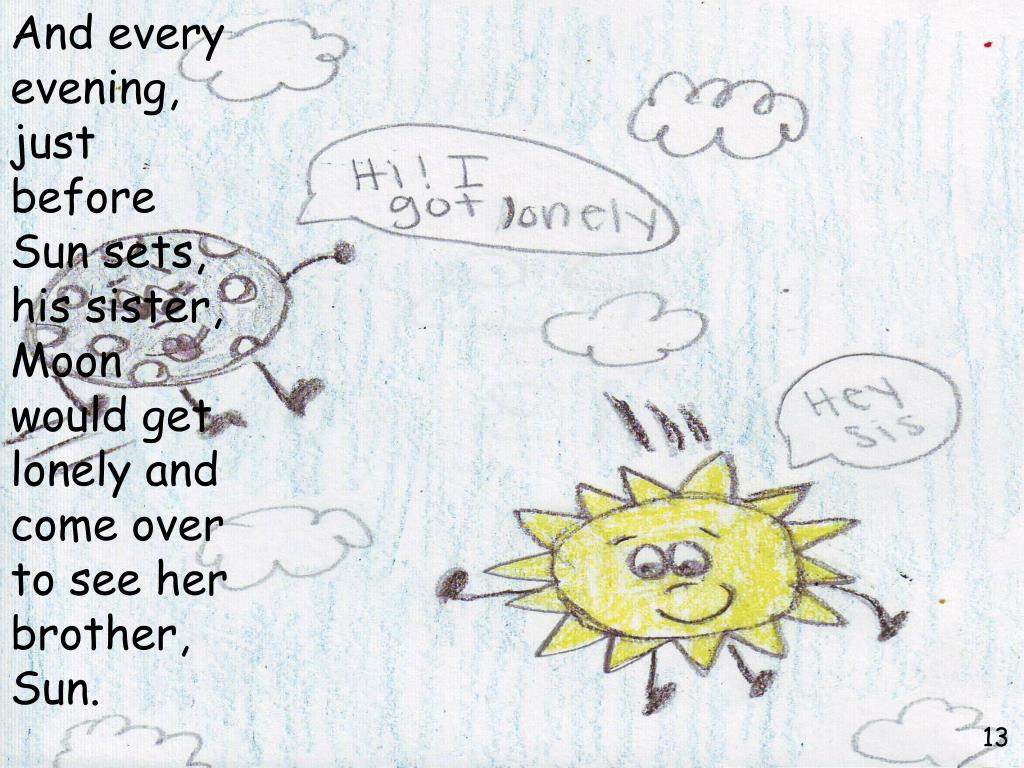 And every
evening,
just
before
Sun sets,
his sister,
Moon
would get
lonely and
come over
to see her
brother,
Sun.
Hi! I
got lonely
Hey
sis
13